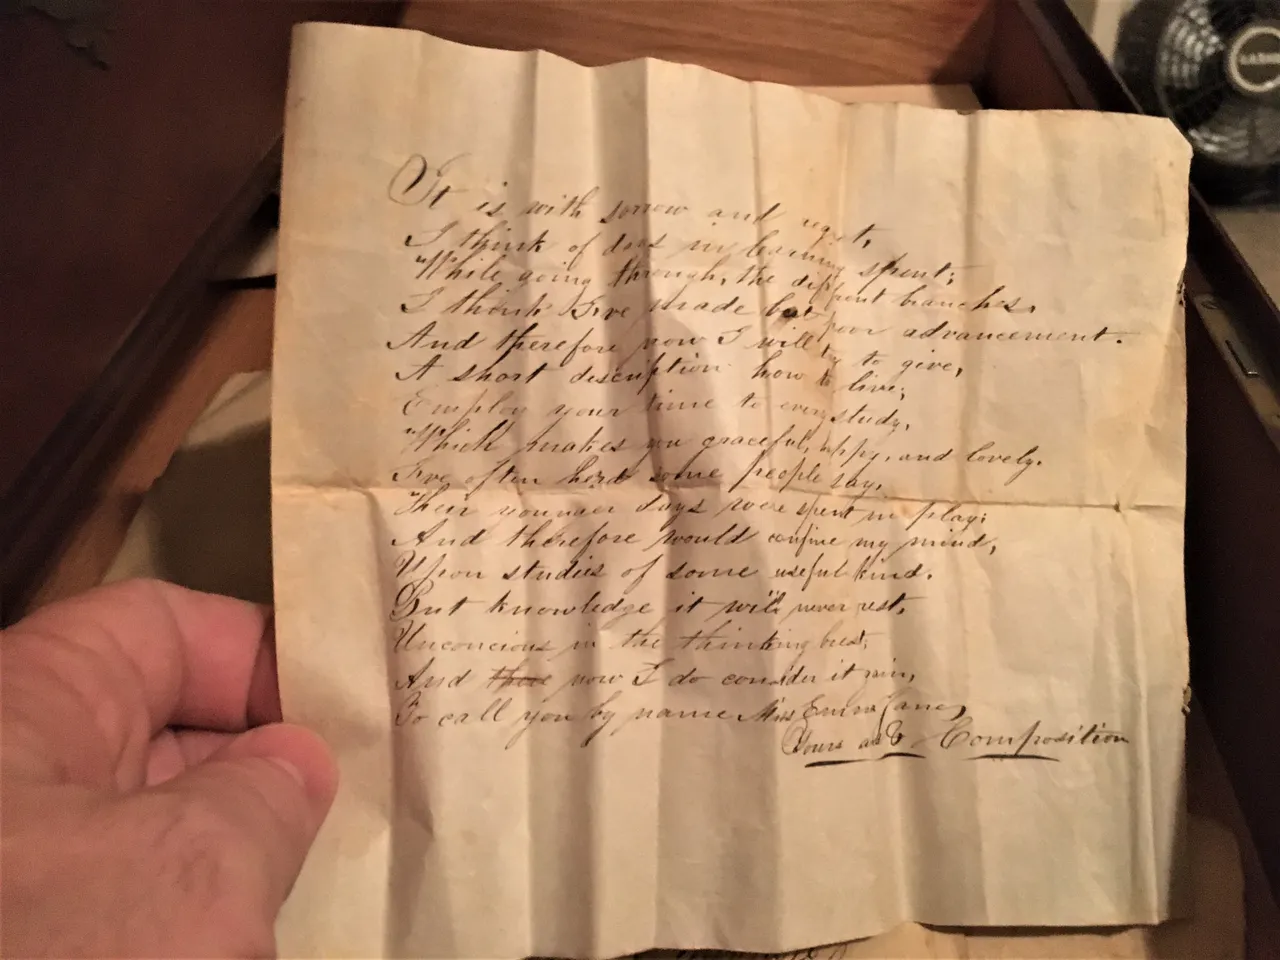 It is with sorrow and regret,
I think of days in learning spent;
While going through, the different branches.
I think I've made but poor advancement.
And therefore now I will try to give,
A short description how to live;
Employ your time to every study,
Which makes you graceful, appy, and lovely.
I've often herd some people say,
Their younger days were spent in play;
And therefore would confine my mind,
Upon studies of some useful kind.
But knowledge it will never rest,
Unconcious in the thinking brest;
And there now I do consider it vain,
To call you by name Miss Emma Jane,
Yours as & Composition